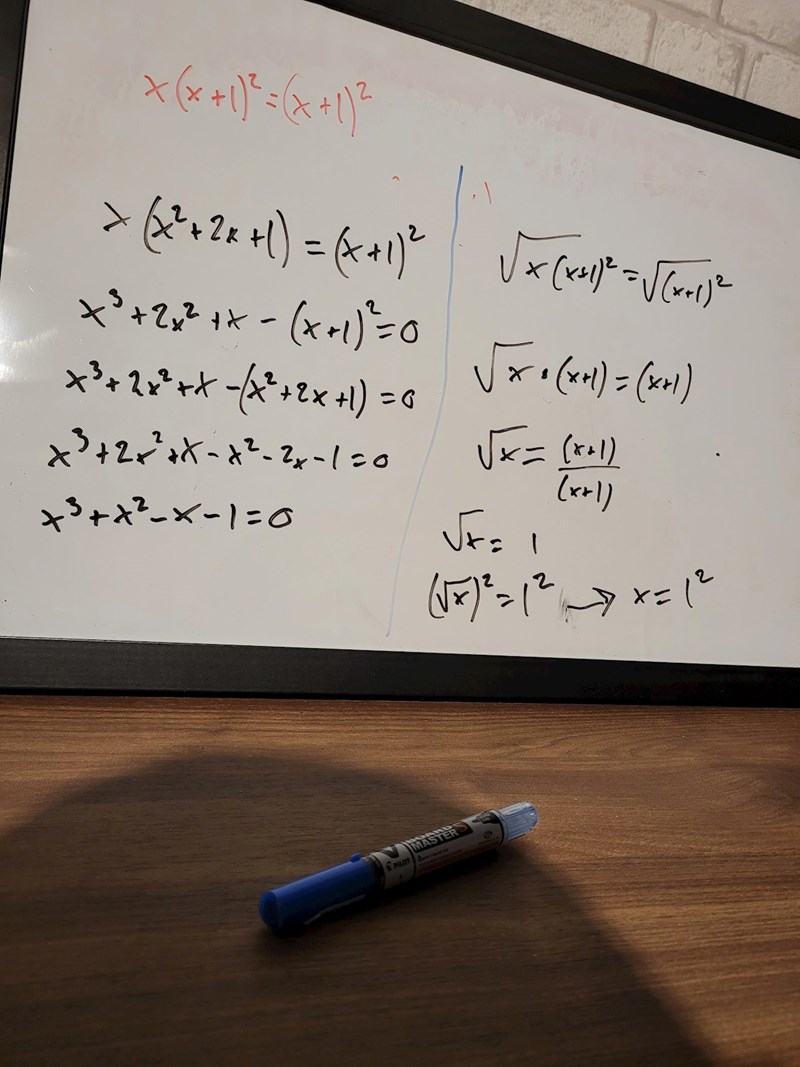 x(x+1)²=(x+1)²
x(x²+2x+1)=(x+1)²
x³+2x²+x-(x+1)²=0
x³+2x²+x-(x²+2x+1)=0
x³+2x²+x-x²-2x-1=0
x³+x²-x-1=0
√x(x+1)²=√(x+1)²
√x·(x+1)=(x+1)
√x=(x+1)/(x+1)
√x=1
(√x)²=1²→x=1²
BOARD
MASTER
PILOT